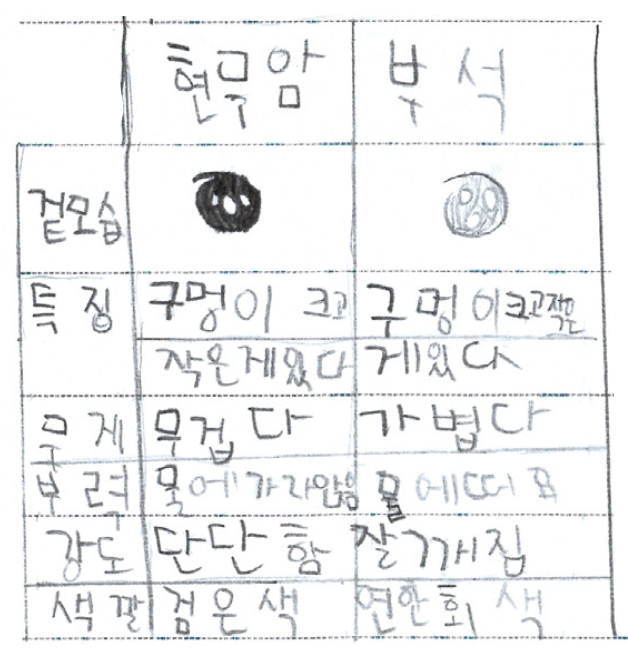 현무암 부석
겉모습
특징 구멍이 크고 구멍이크고작은
작은게있다 게있다
무게 무겁다 가볍다
부력 물에가라앉음 물에떠요
강도 단단함 잘깨짐
색깔 검은색 연한회색